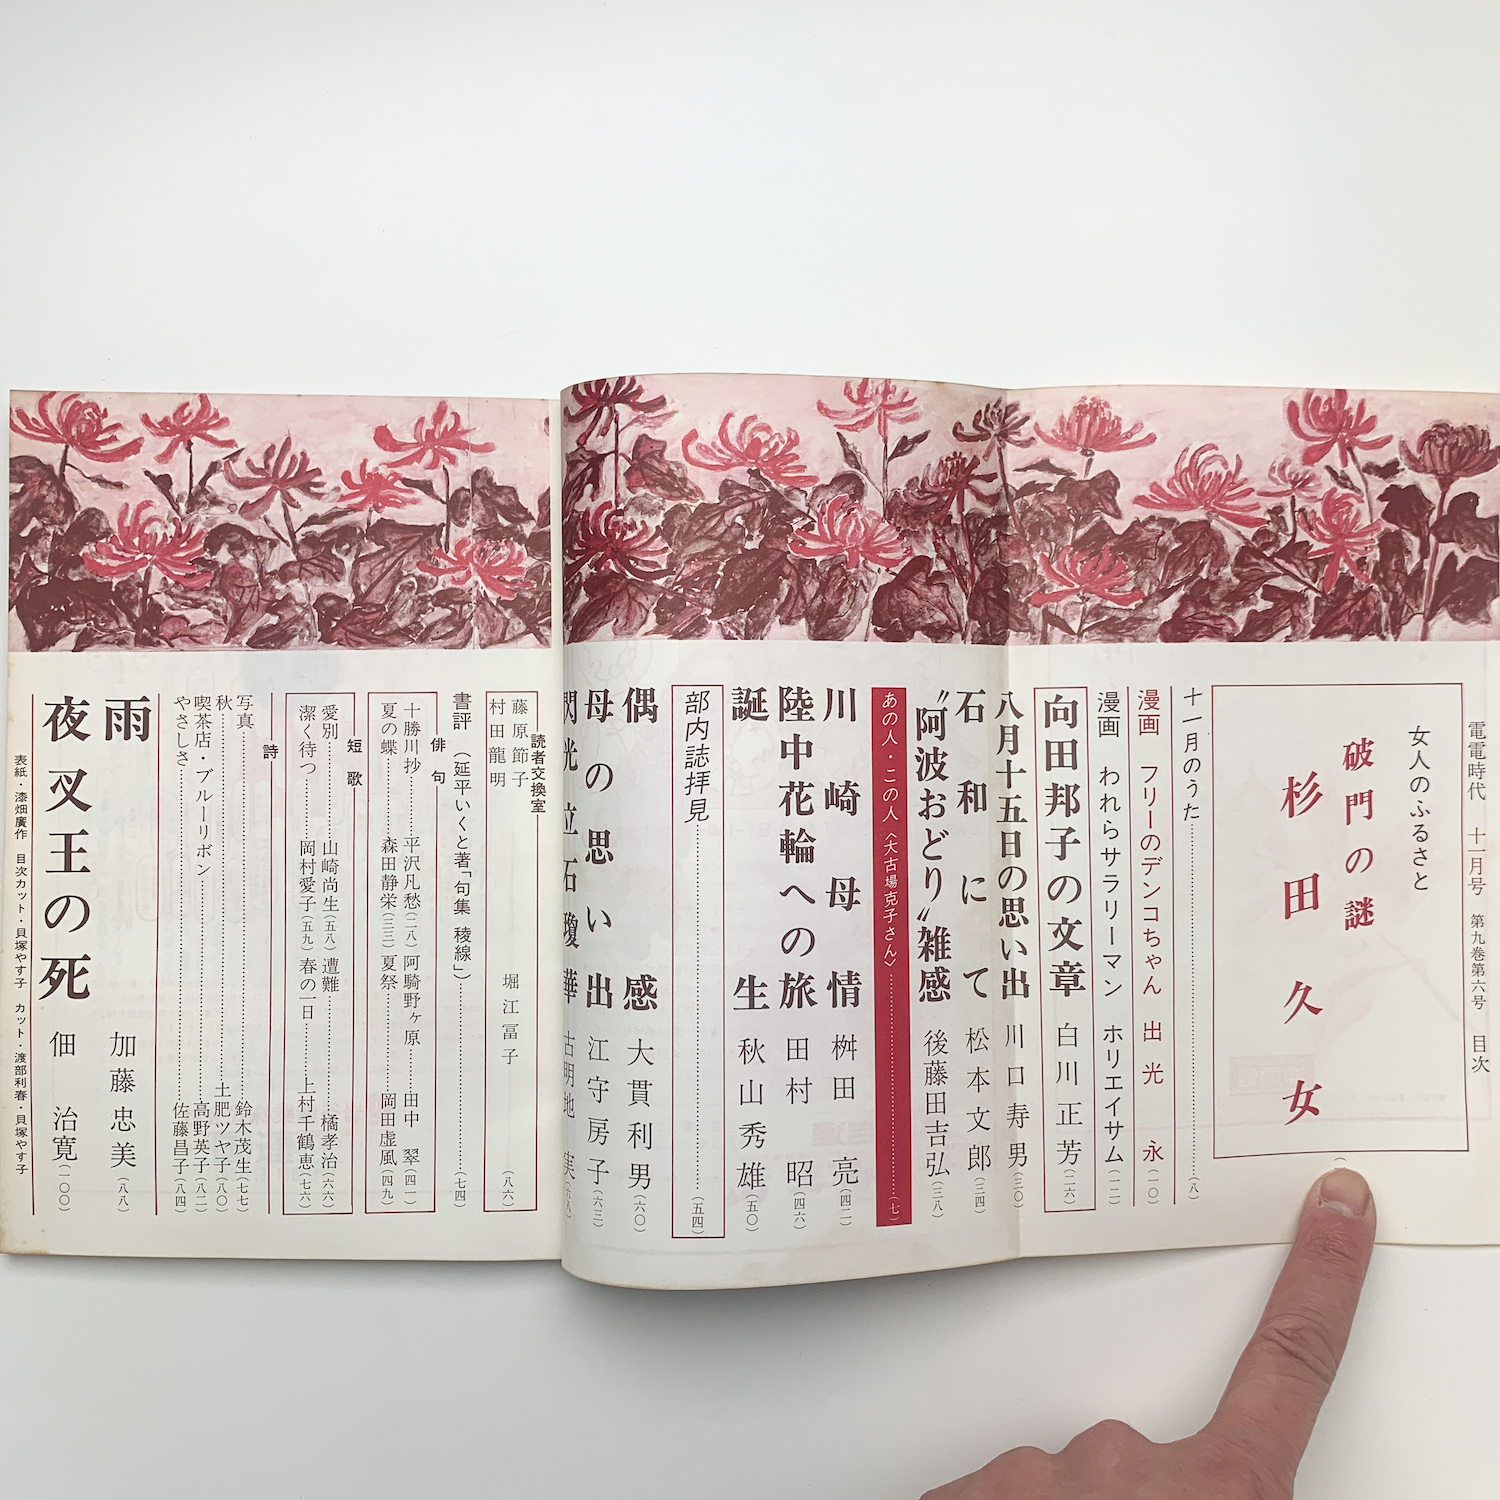 電電時代　十一月号　第九巻第六号　目次
女人のふるさと
破門の謎
杉田久女
十一月のうた……（八）
漫画　フリーのデンコちゃん　出光　永（一〇）
漫画　われらサラリーマン　ホリエイサム（一二）
向田邦子の文章　白川正芳（二六）
八月十五日の思い出　川口寿男（三〇）
石和にて　松本文郎（三四）
〝阿波おどり〟雑感　後藤田吉弘（三八）
あの人・この人〈大古場克子さん〉……（七）
川崎母情　桝田　亮（四二）
陸中花輪への旅　田村　昭（四六）
誕生　秋山秀雄（五〇）
部内誌拝見……（五四）
偶感　大貫利男（六〇）
母の思い出　江守房子（六三）
閃光立石瓊華　古明地　実（六八）
読者交換室
藤原節子
村田龍明
堀江冨子（八六）
書評　（延平いくと著「句集　稜線」）……（七四）
俳句
十勝川抄……平沢凡愁（二八）
阿騎野ヶ原……田中　翠（四一）
夏の蝶……森田静栄（三三）
夏祭……岡田虚風（四九）
短歌
愛別……山崎尚生（五八）
遭難……橘孝治（六六）
潔く待つ……岡村愛子（五九）
春の一日……上村千鶴恵（七六）
詩
写真……鈴木茂生（七七）
秋……土肥ツヤ子（八〇）
喫茶店・ブルーリボン……高野英子（八二）
やさしさ……佐藤昌子（八四）
雨　加藤忠美（八八）
夜叉王の死　佃　治寛（一〇〇）
表紙・漆畑廣作　目次カット・貝塚やす子　カット・渡部利春・貝塚やす子